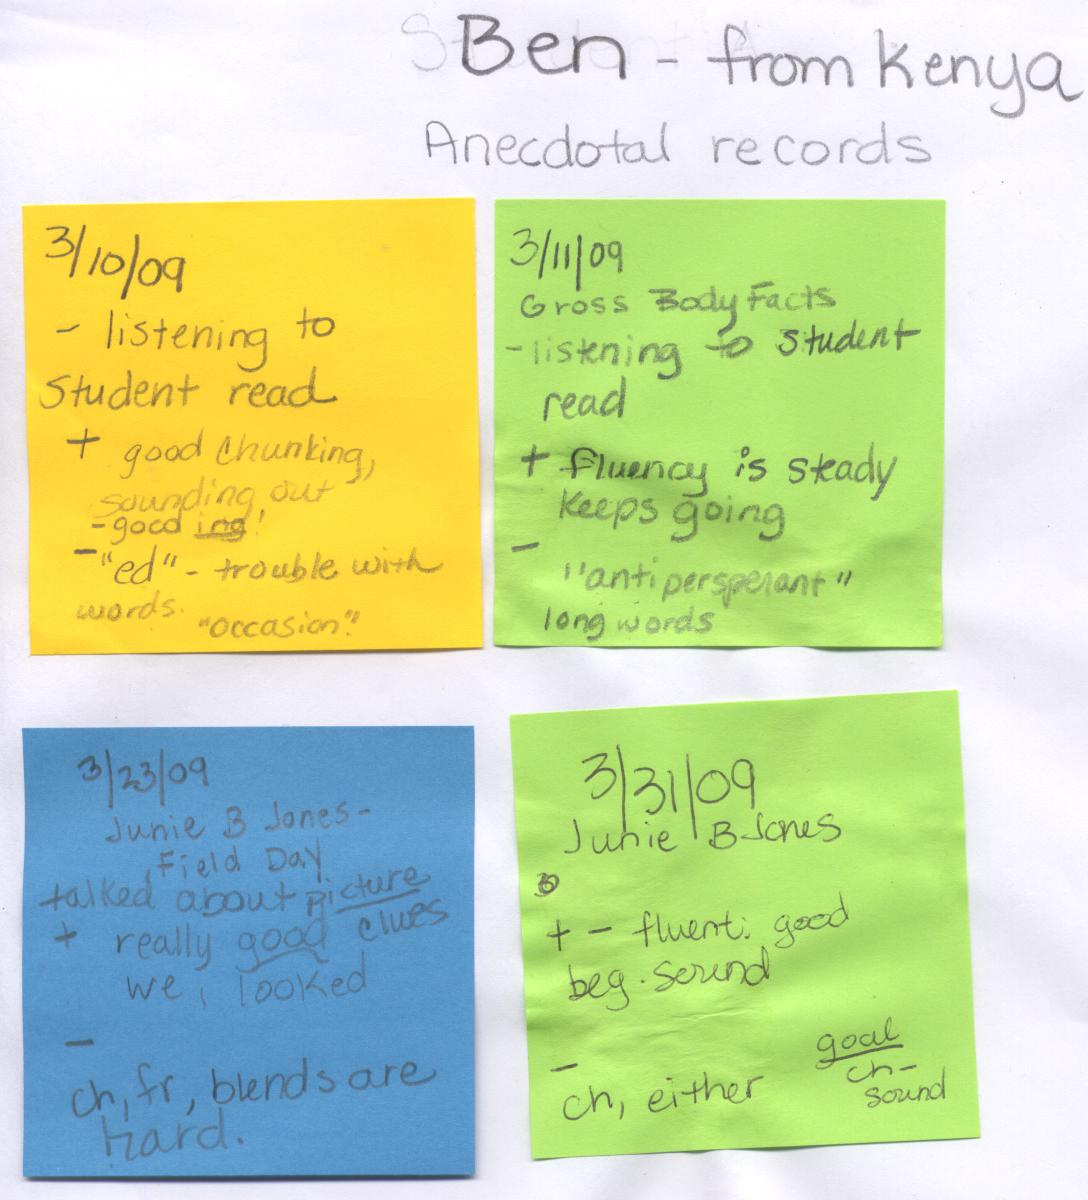 Ben - from Kenya
Anecdotal records
3/10/09
- listening to
Student read
+ good chunking,
sounding out
- good ing!
- "ed" - trouble with
words.
"occasion."
3/11/09
Gross Body Facts
- listening to student
read
+ fluency is steady
keeps going
-
"antipersperant"
long words
3/23/09
Junie B Jones -
Field Day
talked about picture
clues
+ really good
we, looked
-
ch, fr, blends are
hard.
3/31/09
Junie B Jones
+ - fluent: good
beg. sound
-
ch, either
goal
ch-
sound